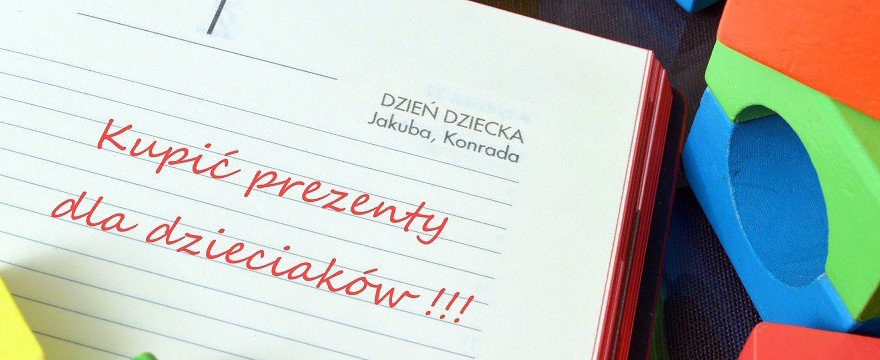 DZIEŃ DZIECKA
Jakuba, Konrada
Kupić prezenty
dla dzieciaków !!!